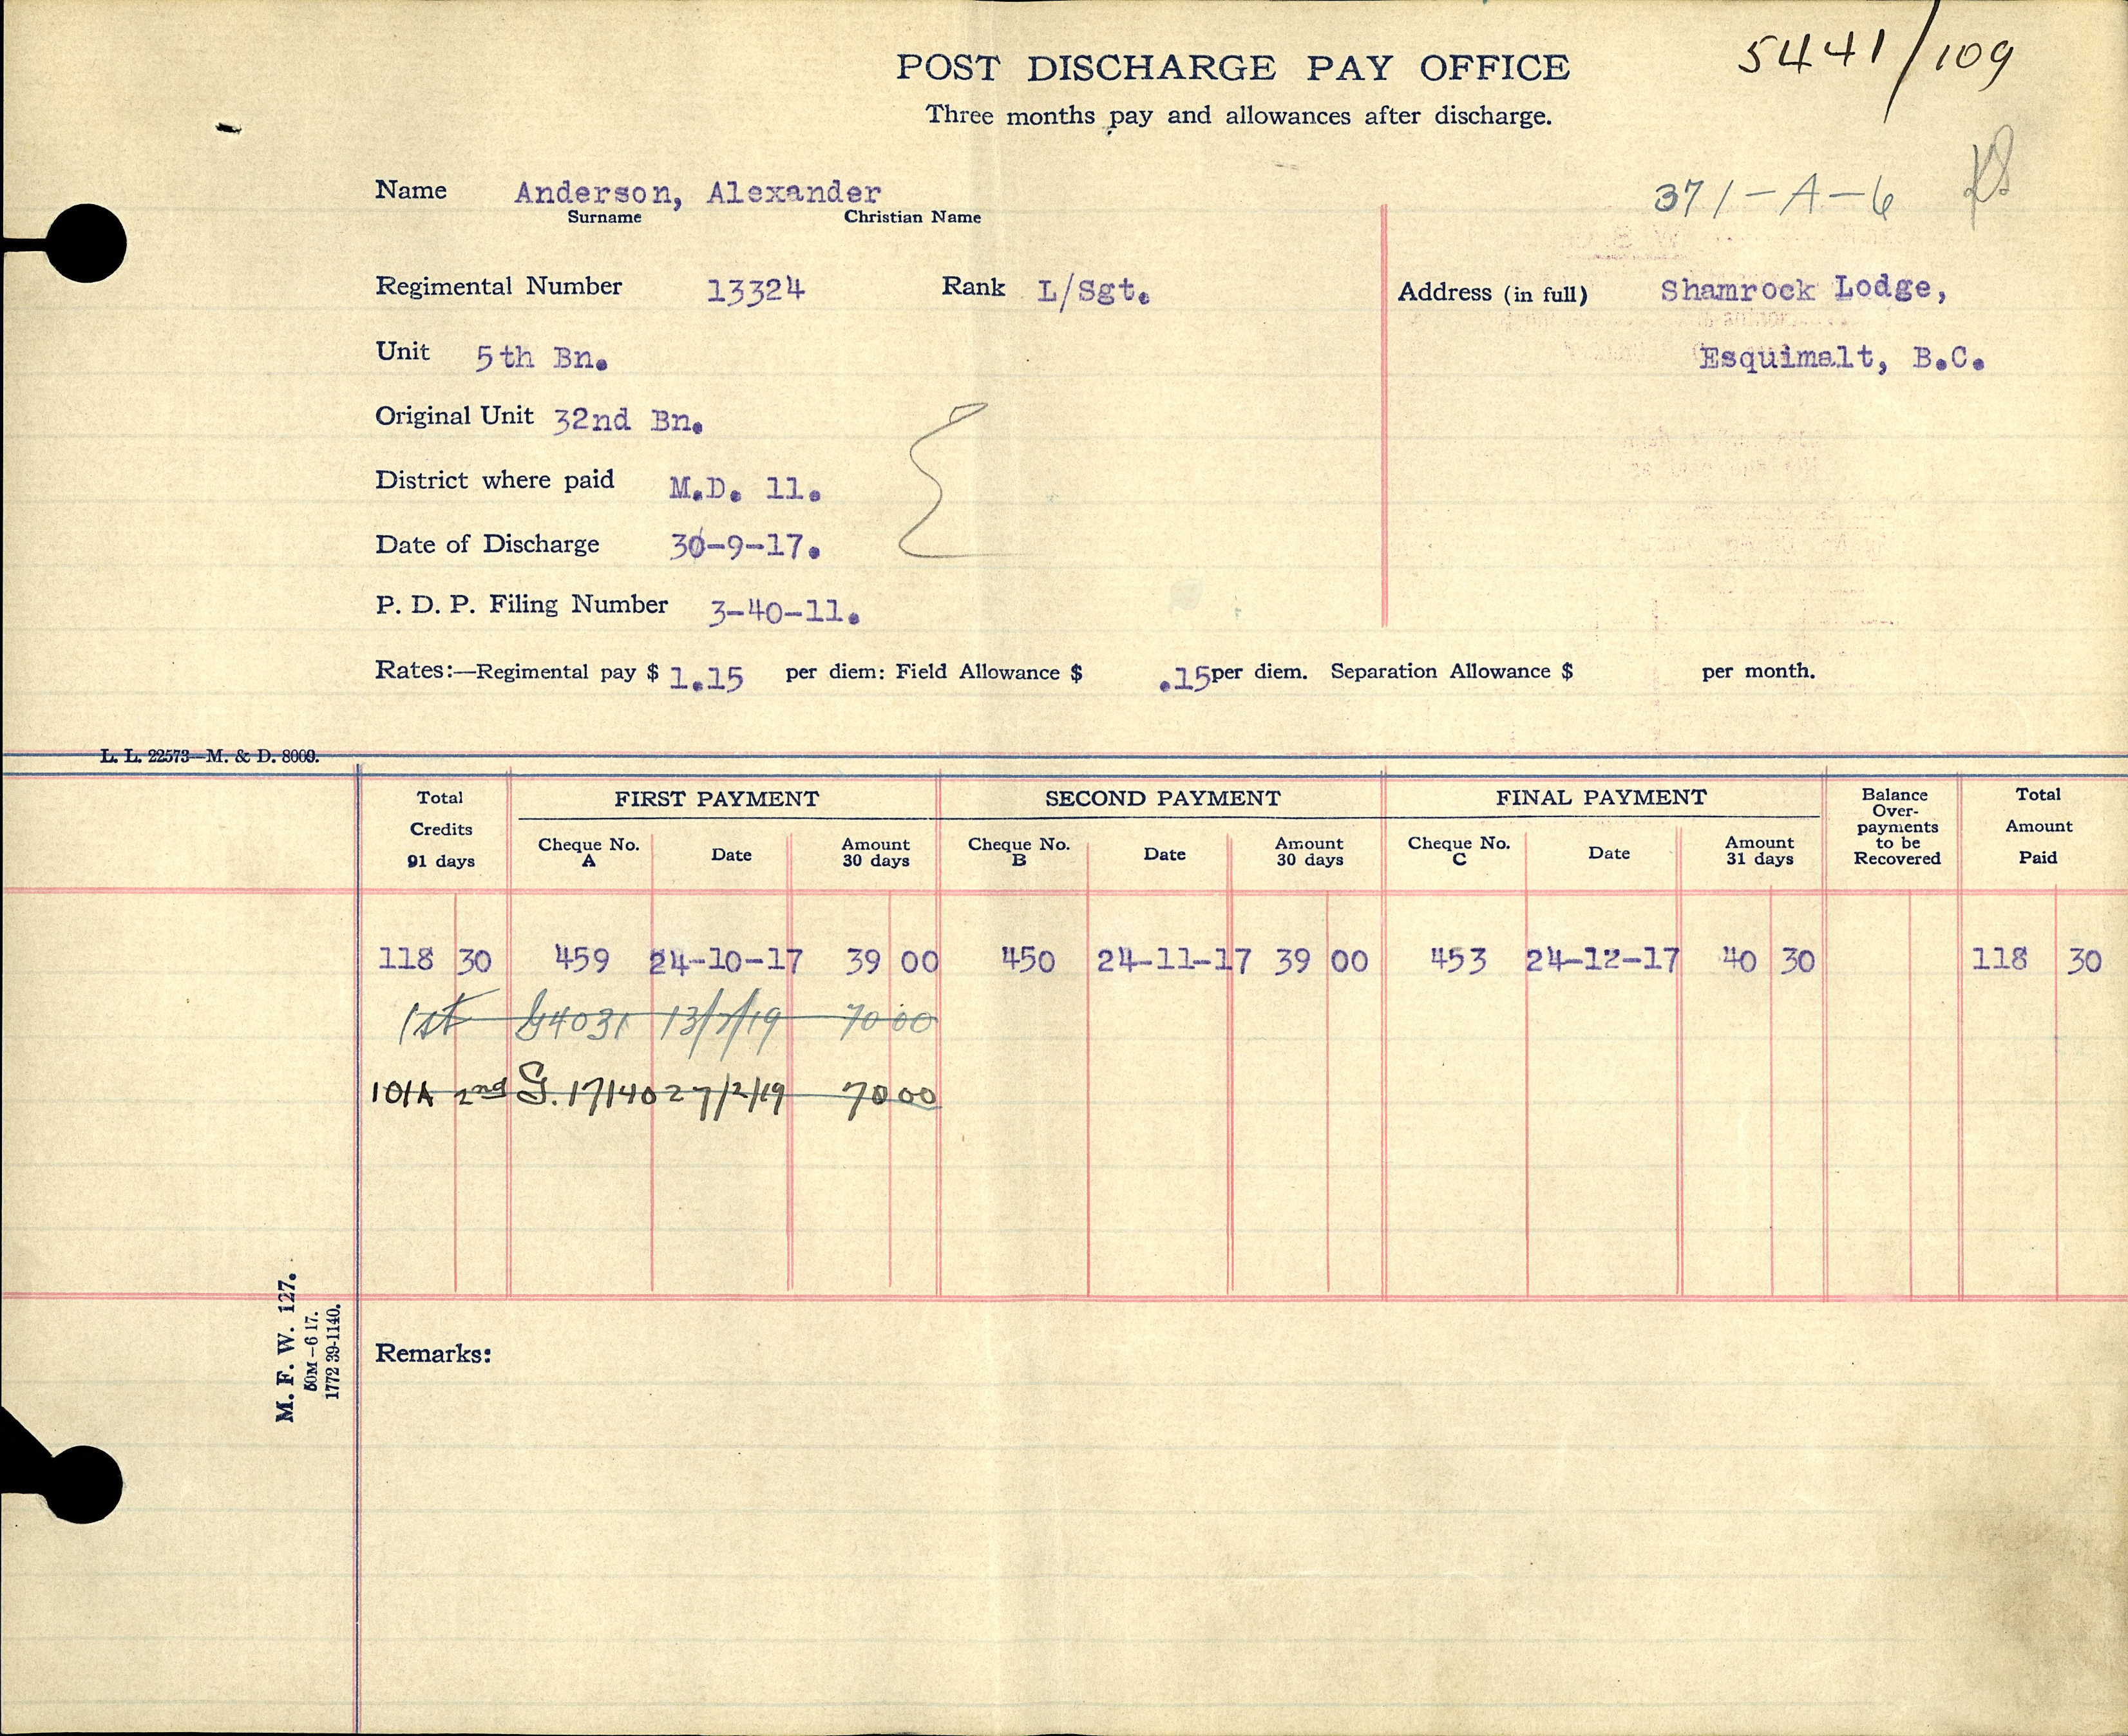 5441/109
POST DISCHARGE PAY OFFICE
Three months pay and allowances after discharge.
371-A-6
Name Anderson, Alexander
Surname Christian Name
Regimental Number 13324 Rank L/Sgt. Address (in full) Shamrock Lodge,
Unit 5th Bn. Esquimalt, B.C.
Original Unit 32nd Bn.
District where paid M.D. 11.
Date of Discharge 30-9-17.
P. D. P. Filing Number 3-40-11.
Rates:—Regimental pay $ 1.15 per diem: Field Allowance $ .15 per diem. Separation Allowance $ per month.
L. L. 22573—M. & D. 8009.
Total Credits 91 days
FIRST PAYMENT
Cheque No. A Date Amount 30 days
SECOND PAYMENT
Cheque No. B Date Amount 30 days
FINAL PAYMENT
Cheque No. C Date Amount 31 days
Balance Over-payments to be Recovered
Total Amount Paid
118 30 459 24-10-17 39 00 450 24-11-17 39 00 453 24-12-17 40 30 118 30
1st 70 00
101A 2nd G. 17140 27/2/19 70 00
M. F. W. 127.
50M-6 17.
1772 39-1140.
Remarks: